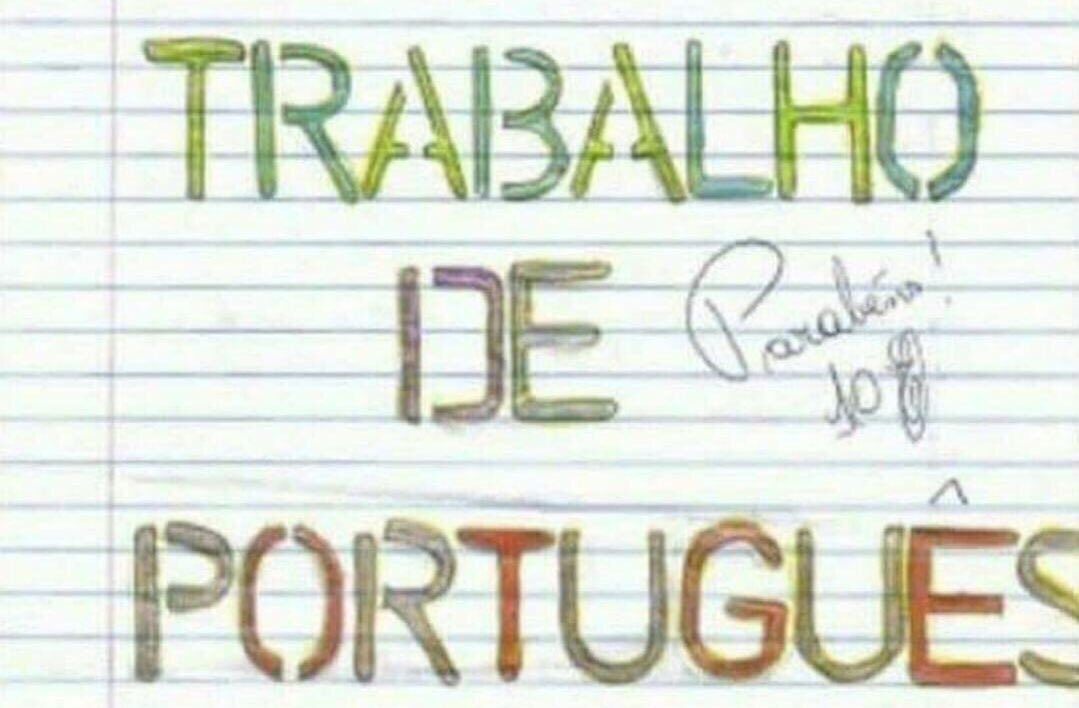 TRABALHO
DE
Parabéns!
10
PORTUGUÊS